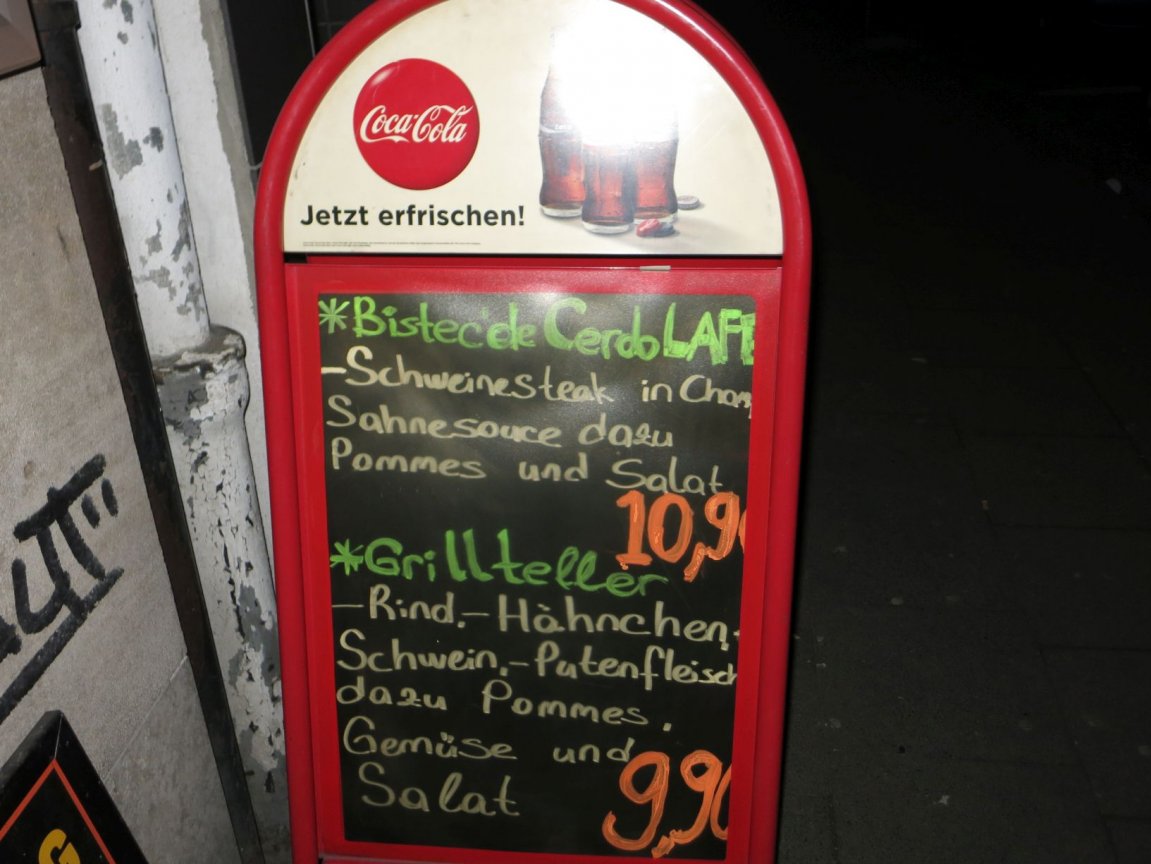 Coca-Cola
Jetzt erfrischen!
*Bistec de Cerdo LAFE
-Schweinesteak in Cham
Sahnesauce dazu
Pommes und Salat
10,90
*Grillteller
-Rind.-Hähnchen.
Schwein.-Putenfleisch
dazu Pommes.
Gemüse und
Salat
9,90